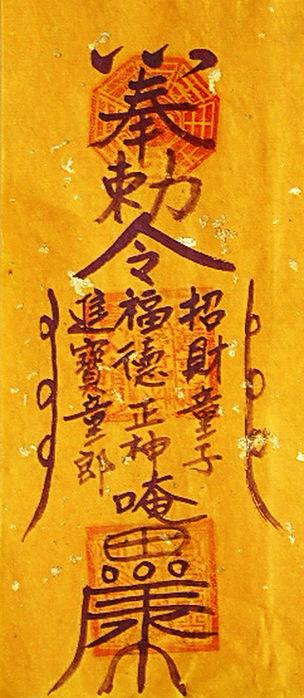 奉勅令
招財童子
福德正神
進寶童郎
唵